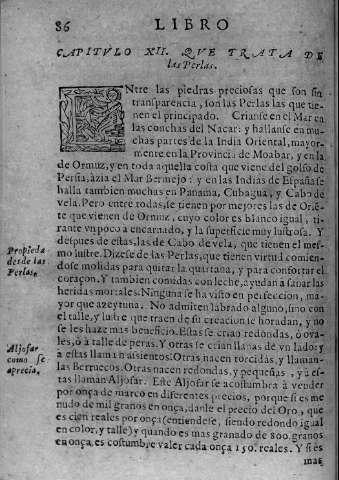 86 LIBRO
CAPITVLO XII. QVE TRATA DE
las Perlas.
ENtre las piedras preciosas que son sin
transparencia, son las Perlas las que tie-
nen el principado. Crianse en el Mar en
las conchas del Nacar: y hallanse en mu-
chas partes de la India Oriental, mayor-
mente en la Provincia de Moabar, y en la
de Ormuz, y en toda aquella costa que viene del golfo de
Persia, àzia el Mar Bermejo: y en las Indias de España se
halla tambien muchas en Panama, Cubagua, y Cabo de
vela. Pero entre todas, se tienen por mejores las de Oriē-
te que vienen de Ormuz, cuyo color es blanco igual, ti-
rante vn poco a encarnado, y la superficie muy lustrosa. Y
despues de estas, las de Cabo de vela, que tienen el mes-
mo lustre. Dizese de las Perlas, que tienen virtud comien-
dose molidas para quitar la quartana, y para confortar el
coraçon. Y tambien comidas con leche, ayudan a sanar las
heridas mortales. Ninguna se ha visto en perfeccion, ma-
yor que azeytuna. No admiten labrado alguno, sino con
el talle, y lustre que traen de su creacion se horadan, y no
se les haze mas beneficio. Estas se crian redondas, ò ova-
les, ò à talle de peras. Y otras se crian llanas de vn lado: y
a estas llaman asientos. Otras nacen torcidas, y llaman-
las Berruecos. Otras nacen redondas, y pequeñas, y à es-
tas llaman Aljofar. Este Aljofar se acostumbra à vender
por onça de marco en diferentes precios, porque si es me
nudo de mil granos en onça, danle el precio del Oro, que
es cien reales por onça (entiendese, siendo redondo igual
en color, y talle) y quando es mas granado de 800. granos
en onça, es costumbre valer cada onça 150. reales. Y si es
mas
Propieda
des de las
Perlas.
Aljofar
como se
aprecia.